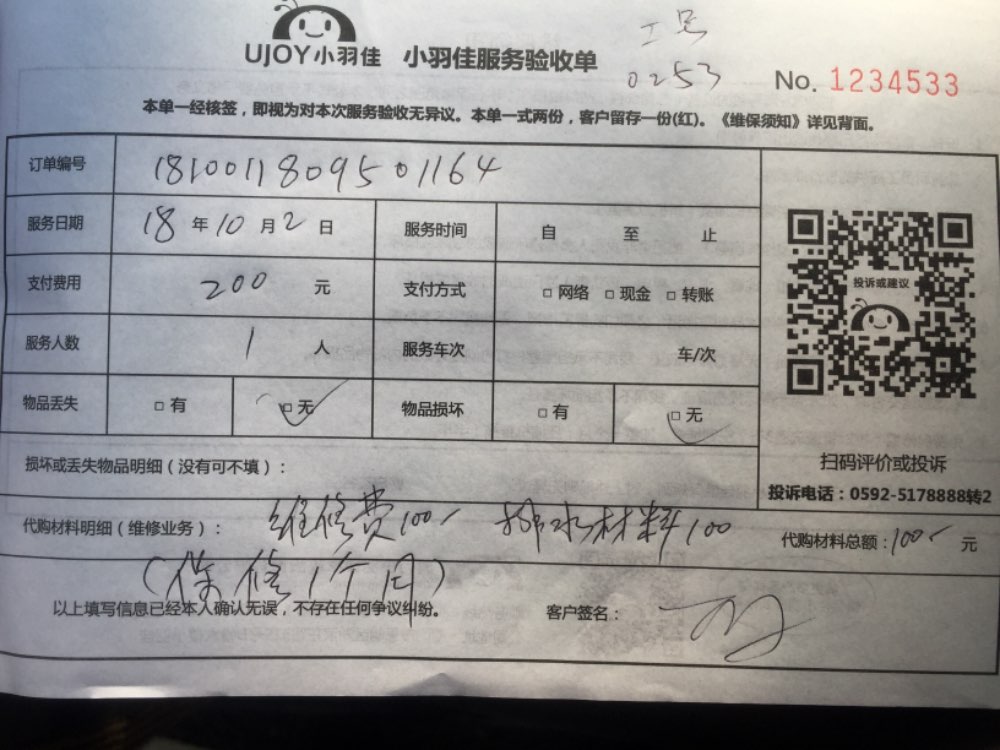 UJOY小羽佳 小羽佳服务验收单
工号
0253
No. 1234533
本单一经核签，即视为对本次服务验收无异议。本单一式两份，客户留存一份(红)。《维保须知》详见背面。
订单编号 1810011809501164
服务日期 18 年 10 月 2 日 服务时间 自 至 止
支付费用 200 元 支付方式 □ 网络 □ 现金 □ 转账
服务人数 1 人 服务车次 车/次
物品丢失 □ 有 □ 无 物品损坏 □ 有 □ 无
投诉或建议
扫码评价或投诉
投诉电话：0592-5178888转2
损坏或丢失物品明细（没有可不填）：
代购材料明细（维修业务）： 维修费100- 排水材料100 代购材料总额：100- 元
（保修1个月）
以上填写信息已经本人确认无误，不存在任何争议纠纷。 客户签名：